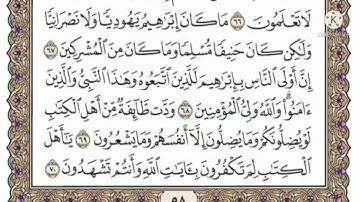 لَا تَعْلَمُونَ ٦٦ مَا كَانَ إِبْرَٰهِيمُ يَهُودِيًّا وَلَا نَصْرَانِيًّا
وَلَٰكِن كَانَ حَنِيفًا مُّسْلِمًا وَمَا كَانَ مِنَ الْمُشْرِكِينَ ٦٧
إِنَّ أَوْلَى النَّاسِ بِإِبْرَٰهِيمَ لَلَّذِينَ اتَّبَعُوهُ وَهَٰذَا النَّبِيُّ وَالَّذِينَ
ءَامَنُوا وَاللَّهُ وَلِيُّ الْمُؤْمِنِينَ ٦٨ وَدَّت طَّائِفَةٌ مِّنْ أَهْلِ الْكِتَٰبِ
لَوْ يُضِلُّونَكُمْ وَمَا يُضِلُّونَ إِلَّا أَنفُسَهُمْ وَمَا يَشْعُرُونَ ٦٩ يَٰأَهْلَ
الْكِتَٰبِ لِمَ تَكْفُرُونَ بِـَٔايَٰتِ اللَّهِ وَأَنتُمْ تَشْهَدُونَ ٧٠
٥٨